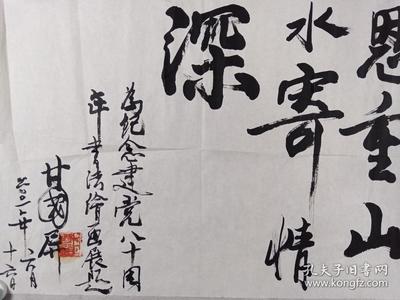 恩重山
水寄情
深
为纪念建党八十周
年书法绘画展题
甘国屏
二〇〇一年六月
十六日
孔夫子旧书网